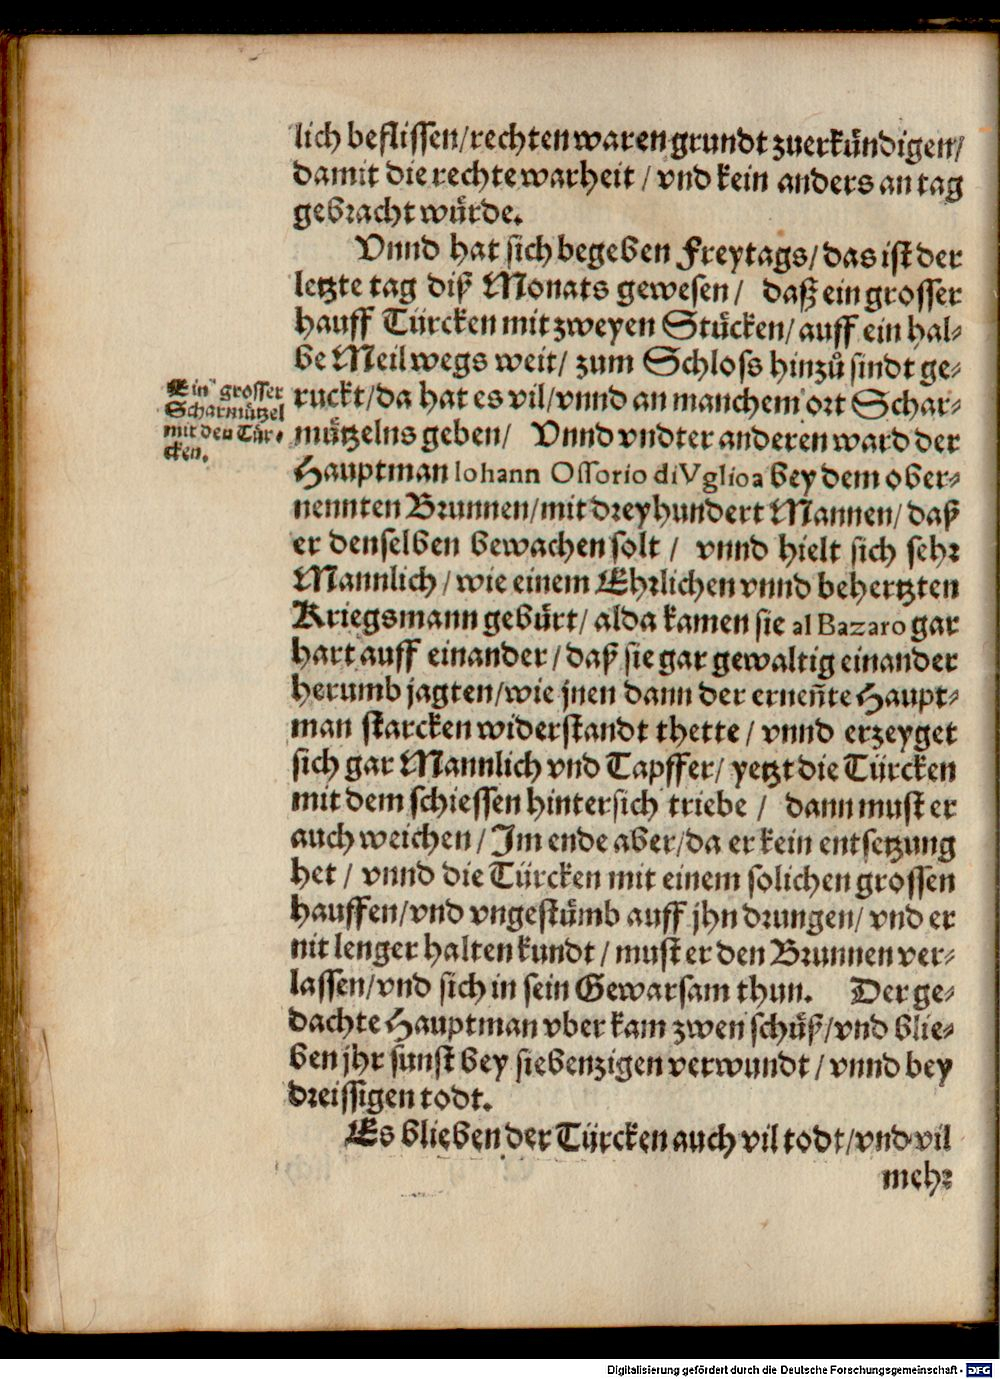 lich beflissen/rechten waren grundt zuerkündigen/
damit die rechte warheit / vnd kein anders an tag
gebracht würde.
Vnnd hat sich begeben Freytags/das ist der
letzte tag diß Monats gewesen / daß ein grosser
hauff Türcken mit zweyen Stücken/auff ein hal-
be Meil wegs weit/ zum Schloss hinzů sindt ge-
ruckt/da hat es vil/vnnd an manchem ort Schar-
mützelns geben/ Vnnd vndter anderen ward der
Hauptman Iohann Ossorio di Vglioa bey dem ober-
nennten Brunnen/mit dreyhundert Mannen/daß
er denselben bewachen solt / vnnd hielt sich sehr
Mannlich/wie einem Ehrlichen vnnd behertzten
Kriegsmann gebürt/alda kamen sie al Bazaro gar
hart auff einander/daß sie gar gewaltig einander
herumb jagten/wie jnen dann der ernen̄te Haupt-
man starcken widerstandt thette / vnnd erzeyget
sich gar Mannlich vnd Tapffer/ yetzt die Türcken
mit dem schiessen hintersich triebe / dann must er
auch weichen/Im ende aber/da er kein entsetzung
het / vnnd die Türcken mit einem solichen grossen
hauffen/vnd vngestümb auff jhn drungen/vnd er
nit lenger halten kundt/must er den Brunnen ver-
lassen/vnd sich in sein Gewarsam thun. Der ge-
dachte Hauptman vber kam zwen schüß/vnd blie-
ben jhr sunst bey siebenzigen verwundt / vnnd bey
dreissigen todt.
Es blieben der Türcken auch vil todt/vnd vil
mehr
Ein grosser
Scharmützel
mit den Tür-
cken.
Digitalisierung gefördert durch die Deutsche Forschungsgemeinschaft - DFG